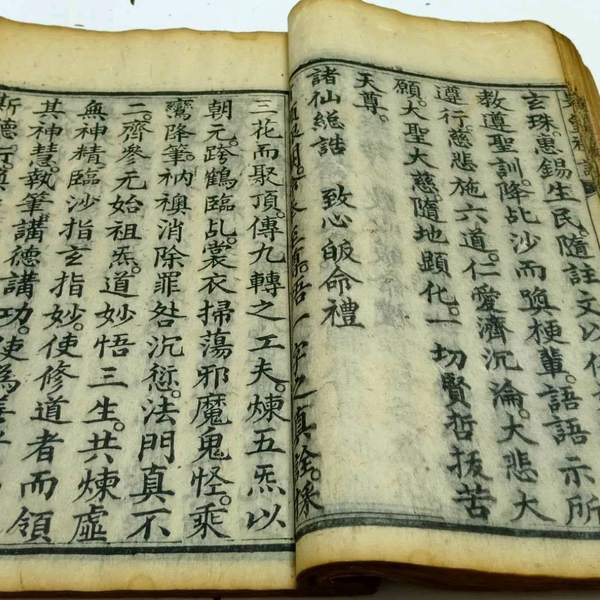 玄珠。惠錫生民。隨註文以
教遵聖訓。降乩沙而梗輩。語語示所
遵行。慈悲施六道。仁愛濟沉淪。大悲大
願。大聖大慈。隨地顯化。一切賢哲拔苦
天尊。
諸仙總誥 致心皈命禮
悟一字之真詮。煉
三花而聚頂。傳九轉之工夫。煉五炁以
朝元。跨鶴臨乩。裳衣掃蕩邪魔鬼怪。乘
鸞降筆。衲襖消除罪咎沉愆。法門真不
二。齊參元始祖炁。道妙悟三生。共煉虛
無神精臨沙指玄指妙。使修道者而領
其神慧。執筆講德講功。使為善者
斯德。行